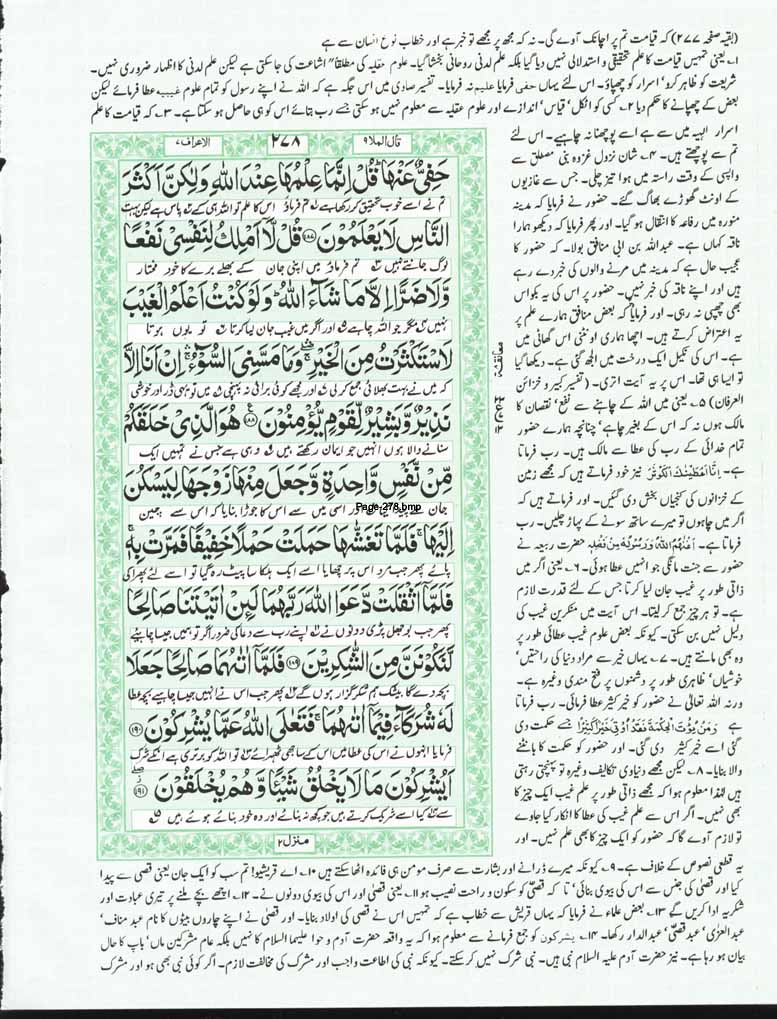 (بقیہ صفحہ ۲۷۷) کہ قیامت تم پر اچانک آوے گی۔ نہ کہ مجھ پر مجھے تو خبر ہے اور خطاب نوع انسان سے ہے
۱۔ یعنی تمہیں قیامت کا علم تحقیقی و استدلالی نہیں دیا گیا بلکہ علم لدنی روحانی بخشا گیا۔ علوم عقلیہ کی مطلقاً اشاعت کی جا سکتی ہے لیکن علم لدنی کا اظہار ضروری نہیں۔
شریعت کو ظاہر کرو' اسرار کو چھپاؤ۔ اس لئے یہاں حفی فرمایا علیم نہ فرمایا۔ تفسیر صاوی میں اس جگہ ہے کہ اللہ نے اپنے رسول کو تمام علوم غیبیہ عطا فرمائے لیکن
بعض کے چھپانے کا حکم دیا ۲۔ کسی کو اٹکل' قیاس' اندازے اور علوم عقلیہ سے معلوم نہیں ہو سکتی جسے رب بتائے اس کو ہی حاصل ہو سکتا ہے۔ ۳۔ کہ قیامت کا علم
اسرار الہیہ میں سے ہے اسے پوچھنا نہ چاہیے۔ اس لئے
تم سے پوچھتے ہیں۔ ۴۔ شان نزول غزوہ بنی مصطلق سے
واپسی کے وقت راستہ میں ہوا تیز چلی۔ جس سے غازیوں
کے اونٹ گھوڑے بھاگ گئے۔ حضور نے فرمایا کہ مدینہ
منورہ میں رفاعہ کا انتقال ہو گیا۔ اور پھر فرمایا کہ دیکھو ہمارا
ناقہ کہاں ہے۔ عبداللہ بن ابی منافق بولا۔ کہ حضور کا
عجیب حال ہے کہ مدینہ میں مرنے والوں کی خبر دے رہے
ہیں اور اپنے ناقہ کی خبر نہیں۔ حضور پر اس کی یہ بکواس
بھی چھپی نہ رہی۔ اور فرمایا کہ بعض منافق ہمارے علم پر
یہ اعتراض کرتے ہیں۔ اچھا ہماری اونٹنی اس گھاٹی میں
ہے۔ اس کی نکیل ایک درخت میں الجھ گئی ہے۔ دیکھا گیا
تو ایسا ہی تھا۔ اس پر یہ آیت اتری۔ (تفسیر کبیر و خزائن
العرفان) ۵۔ یعنی میں اللہ کے چاہنے سے نفع' نقصان کا
مالک ہوں نہ کہ اس کے بغیر چاہے' چنانچہ ہمارے حضور
تمام خدائی کے رب کی عطا سے مالک ہیں۔ رب فرماتا
ہے۔ إِنَّا أَعْطَيْنَاكَ الْكَوْثَرَ۔ نیز خود فرماتے ہیں کہ مجھے زمین
کے خزانوں کی کنجیاں بخش دی گئیں۔ اور فرماتے ہیں کہ
اگر میں چاہوں تو میرے ساتھ سونے کے پہاڑ چلیں۔ رب
فرماتا ہے۔ أَغْنٰهُمُ اللّٰهُ وَرَسُوْلُهٗ مِنْ فَضْلِهٖ حضرت ربیعہ نے
حضور سے جنت مانگی جو انہیں عطا ہوئی۔ ۶۔ یعنی اگر میں
ذاتی طور پر غیب جان لیا کرتا جس کے لئے قدرت لازم
ہے۔ تو ہر چیز جمع کر لیتا۔ اس آیت میں منکرین غیب کی
دلیل نہیں بن سکتی۔ کیونکہ بعض علوم غیب عطائی طور پر
وہ بھی مانتے ہیں۔ ۷۔ یہاں خیر سے مراد دنیا کی راحتیں'
خوشیاں' ظاہری طور پر دشمنوں پر فتح مندی وغیرہ ہے۔
ورنہ اللہ تعالیٰ نے حضور کو خیر کثیر عطا فرمائی۔ رب فرماتا
ہے وَمَنْ يُّؤْتَ الْحِكْمَةَ فَقَدْ أُوْتِيَ خَيْرًا كَثِيْرًا جسے حکمت دی
گئی اسے خیر کثیر دی گئی۔ اور حضور کو حکمت کا بانٹنے
والا بنایا۔ ۸۔ لیکن مجھے دنیاوی تکالیف وغیرہ تو پہنچتی رہتی
ہیں لہذا معلوم ہوا کہ مجھے ذاتی طور پر علم غیب ایک چیز کا
بھی نہیں۔ اگر اس سے علم غیب عطا کا انکار کیا جاوے
تو لازم آوے گا کہ حضور کو ایک چیز کا بھی علم نہیں۔ اور
قال الملا ۹
۲۷۸
الاعراف ۷
حَفِيٌّ عَنْهَا قُلْ اِنَّمَا عِلْمُهَا عِنْدَ اللّٰهِ وَلٰكِنَّ اَكْثَرَ
تم نے اسے خوب تحقیق کر رکھا ہے تم فرماؤ اس کا علم تو اللہ ہی کے پاس ہے لیکن بہت
النَّاسِ لَا يَعْلَمُوْنَ ۱۸۷ قُلْ لَّا اَمْلِكُ لِنَفْسِيْ نَفْعًا
لوگ جانتے نہیں تم فرماؤ میں اپنی جان کے بھلے برے کا خود مختار
وَّلَا ضَرًّا اِلَّا مَا شَآءَ اللّٰهُ وَلَوْ كُنْتُ اَعْلَمُ الْغَيْبَ
نہیں مگر جو اللہ چاہے اور اگر میں غیب جان لیا کرتا تو یوں ہوتا
لَاسْتَكْثَرْتُ مِنَ الْخَيْرِ وَمَا مَسَّنِيَ السُّوْٓءُ اِنْ اَنَا اِلَّا
کہ میں نے بہت بھلائی جمع کر لی اور مجھے کوئی برائی نہ پہنچی میں تو یہی ڈر اور خوشی
نَذِيْرٌ وَّبَشِيْرٌ لِّقَوْمٍ يُّؤْمِنُوْنَ ۱۸۸ هُوَ الَّذِيْ خَلَقَكُمْ
سنانے والا ہوں انہیں جو ایمان رکھتے ہیں وہی ہے جس نے تمہیں ایک
مِّنْ نَّفْسٍ وَّاحِدَةٍ وَّجَعَلَ مِنْهَا زَوْجَهَا لِيَسْكُنَ
جان سے پیدا کیا اور اسی میں سے اس کا جوڑا بنایا کہ اس سے چین
Page-278.bmp
اِلَيْهَا فَلَمَّا تَغَشّٰىهَا حَمَلَتْ حَمْلًا خَفِيْفًا فَمَرَّتْ بِهٖ
پائے پھر جب مرد اس پر چھایا اسے ایک ہلکا سا پیٹ رہ گیا تو اسے لئے پھرا کی
فَلَمَّآ اَثْقَلَتْ دَّعَوَا اللّٰهَ رَبَّهُمَا لَئِنْ اٰتَيْتَنَا صَالِحًا
پھر جب بوجھل پڑی دونوں نے اپنے رب سے دعا کی ضرور اگر تو ہمیں جیسا چاہیے
لَّنَكُوْنَنَّ مِنَ الشّٰكِرِيْنَ ۱۸۹ فَلَمَّآ اٰتٰىهُمَا صَالِحًا جَعَلَا
بچہ دے گا بیشک ہم شکر گزار ہوں گے پھر جب اس نے انہیں جیسا چاہیے بچہ عطا
لَهٗ شُرَكَآءَ فِيْمَآ اٰتٰىهُمَا فَتَعٰلَى اللّٰهُ عَمَّا يُشْرِكُوْنَ ۱۹۰
فرمایا انہوں نے اس کی عطا میں اس کے ساجھی ٹھہرائے تو اللہ کو برتری ہے انکے شرک
اَيُشْرِكُوْنَ مَا لَا يَخْلُقُ شَيْـًٔا وَّهُمْ يُخْلَقُوْنَ ۱۹۱
سے کیا اسے شریک کرتے ہیں جو کچھ نہ بنائے اور وہ خود بنائے ہوئے ہیں
منزل ۲
یہ قطعی نصوص کے خلاف ہے۔ ۹۔ کیونکہ میرے ڈرانے اور بشارت سے صرف مومن ہی فائدہ اٹھا سکتے ہیں ۱۰۔ اے قریشیو! تم سب کو ایک جان یعنی قصی سے پیدا
کیا اور قصی کی جنس سے اس کی بیوی بنائی' تا کہ قصی کو سکون و راحت نصیب ہو ۱۱۔ یعنی قصی اور اس کی بیوی دونوں نے۔ ۱۲۔ اچھے بچے ملنے پر تیری عبادت اور
شکریہ ادا کریں گے ۱۳۔ بعض علماء نے فرمایا کہ یہاں قریش سے خطاب ہے کہ تمہیں اس نے قصی کی اولاد بنایا۔ اور قصی نے اپنے چاروں بیٹوں کا نام عبد مناف'
عبد العزی' عبد قصی' عبد الدار رکھا۔ ۱۴۔ یشرکون کو جمع فرمانے سے معلوم ہوا کہ یہ واقعہ حضرت آدم و حوا علیہما السلام کا نہیں بلکہ عام مشرکین ماں' باپ کا حال
بیان ہو رہا ہے۔ نیز حضرت آدم علیہ السلام نبی ہیں۔ نبی شرک نہیں کر سکتے۔ کیونکہ نبی کی اطاعت واجب اور مشرک کی مخالفت لازم۔ اگر کوئی نبی بھی ہو اور مشرک